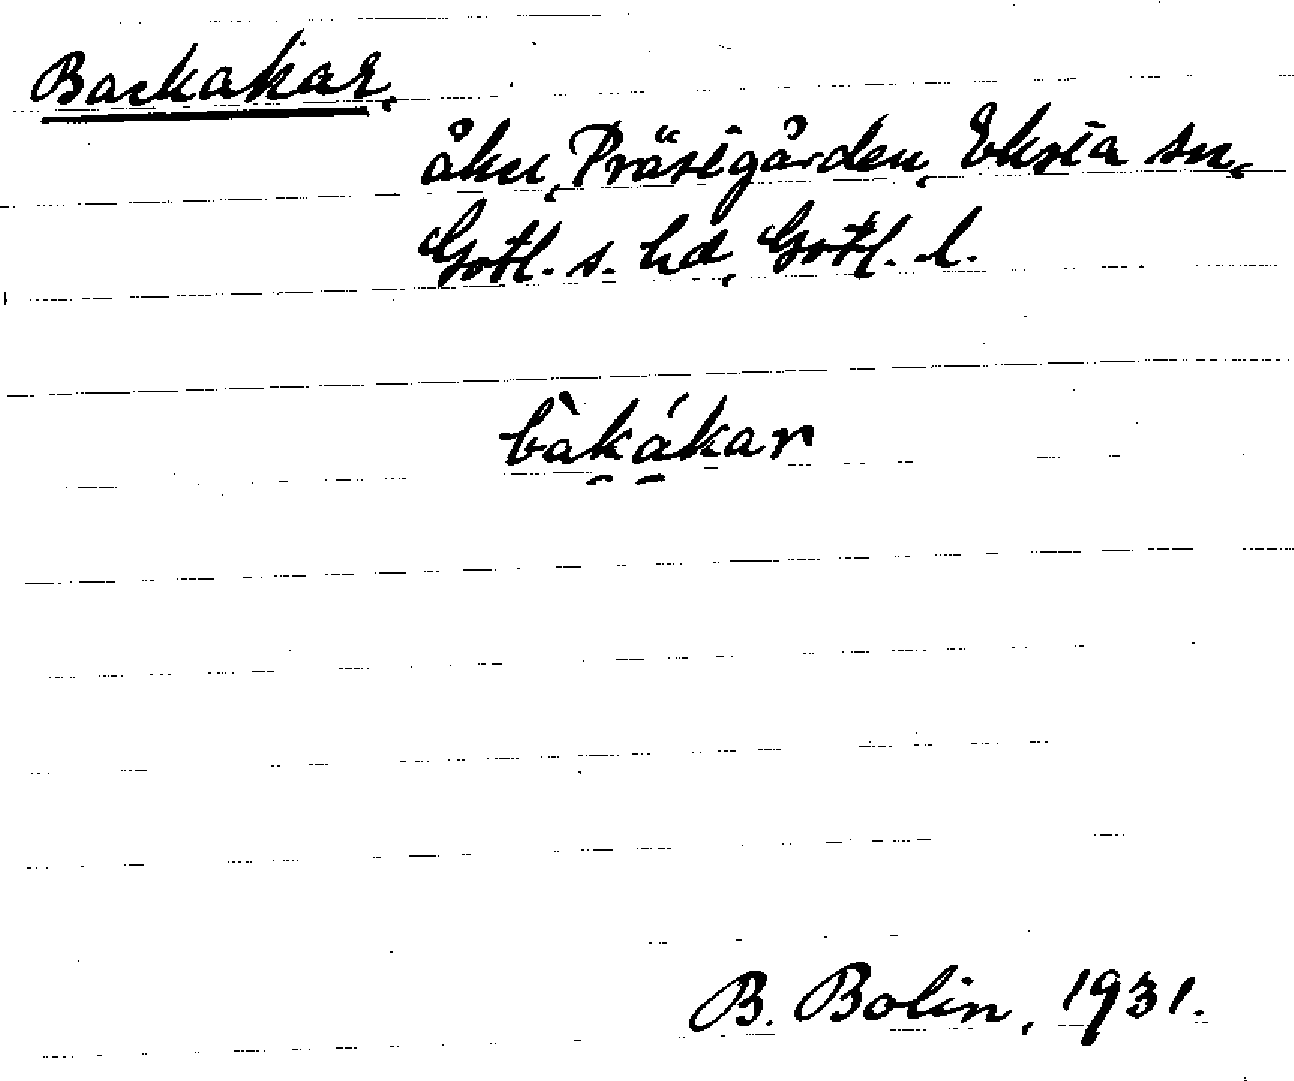 Backakar,
åkr, Prästgården, Eksta sn,
Gotl. s. hd, Gotl. l.
bàkákar
B. Bolin, 1931.